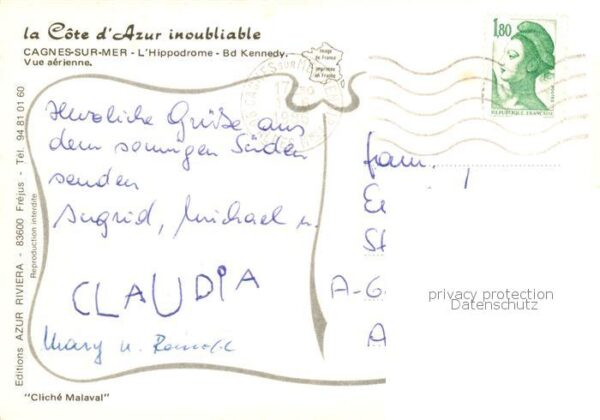 la Côte d'Azur inoubliable
CAGNES-SUR-MER - L'Hippodrome - Bd Kennedy.
Vue aérienne.
Image
de France
imprimée
en France
CAGNES SUR MER
1,80
REPUBLIQUE FRANÇAISE
Herzliche Grüße aus
dem sonnigen Süden
senden
Ingrid, Michael u.
CLAUDIA
Mary u.
Fam.
E
St
A-G
A
privacy protection
Datenschutz
Editions AZUR RIVIERA - 83600 Fréjus - Tél. 94 81 01 60
Reproduction interdite
"Cliché Malaval"